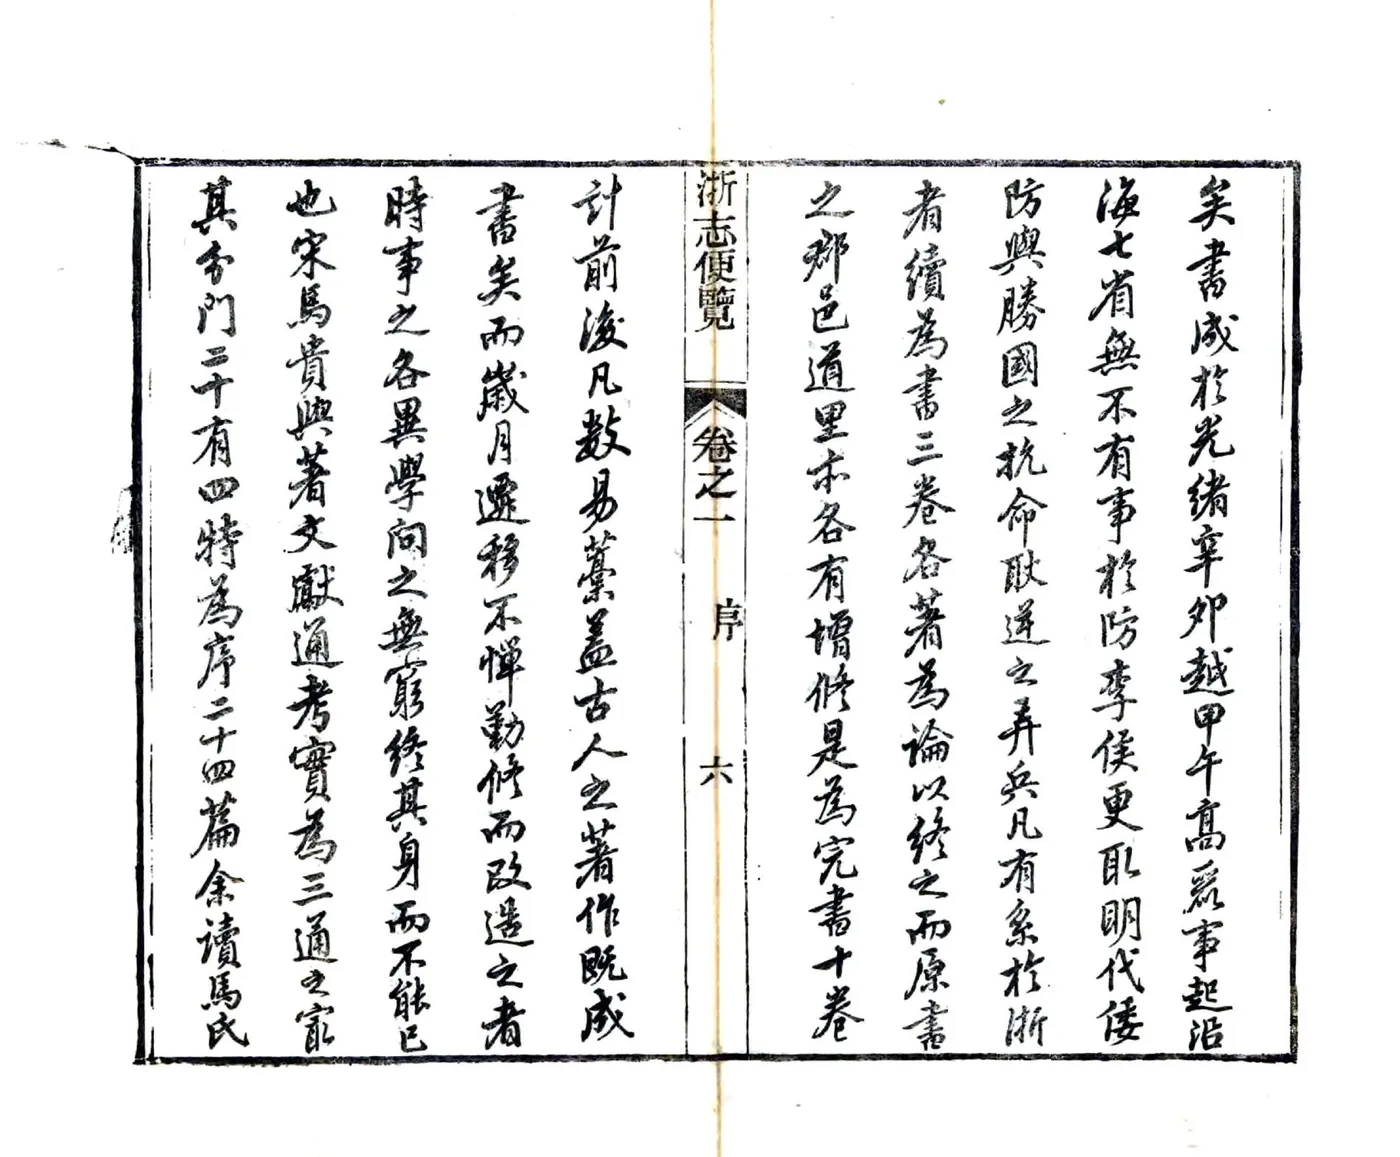 矣書成於光緒辛卯越甲午高麗事起沿
海七省無不有事於防李侯更取明代倭
防與勝國之抗命耿逆之弄兵凡有系於浙
者續為書三卷各著為論以終之而原書
之郡邑道里亦各有增修是為完書十卷
浙志便覽 卷之一 序 六
計前後凡數易藁蓋古人之著作既成
書矣而歲月遷移不憚勤修而改造之者
時事之各異學問之無窮終其身而不能已
也宋馬貴與著文獻通考實為三通之最
其分門二十有四特為序二十四篇余讀馬氏